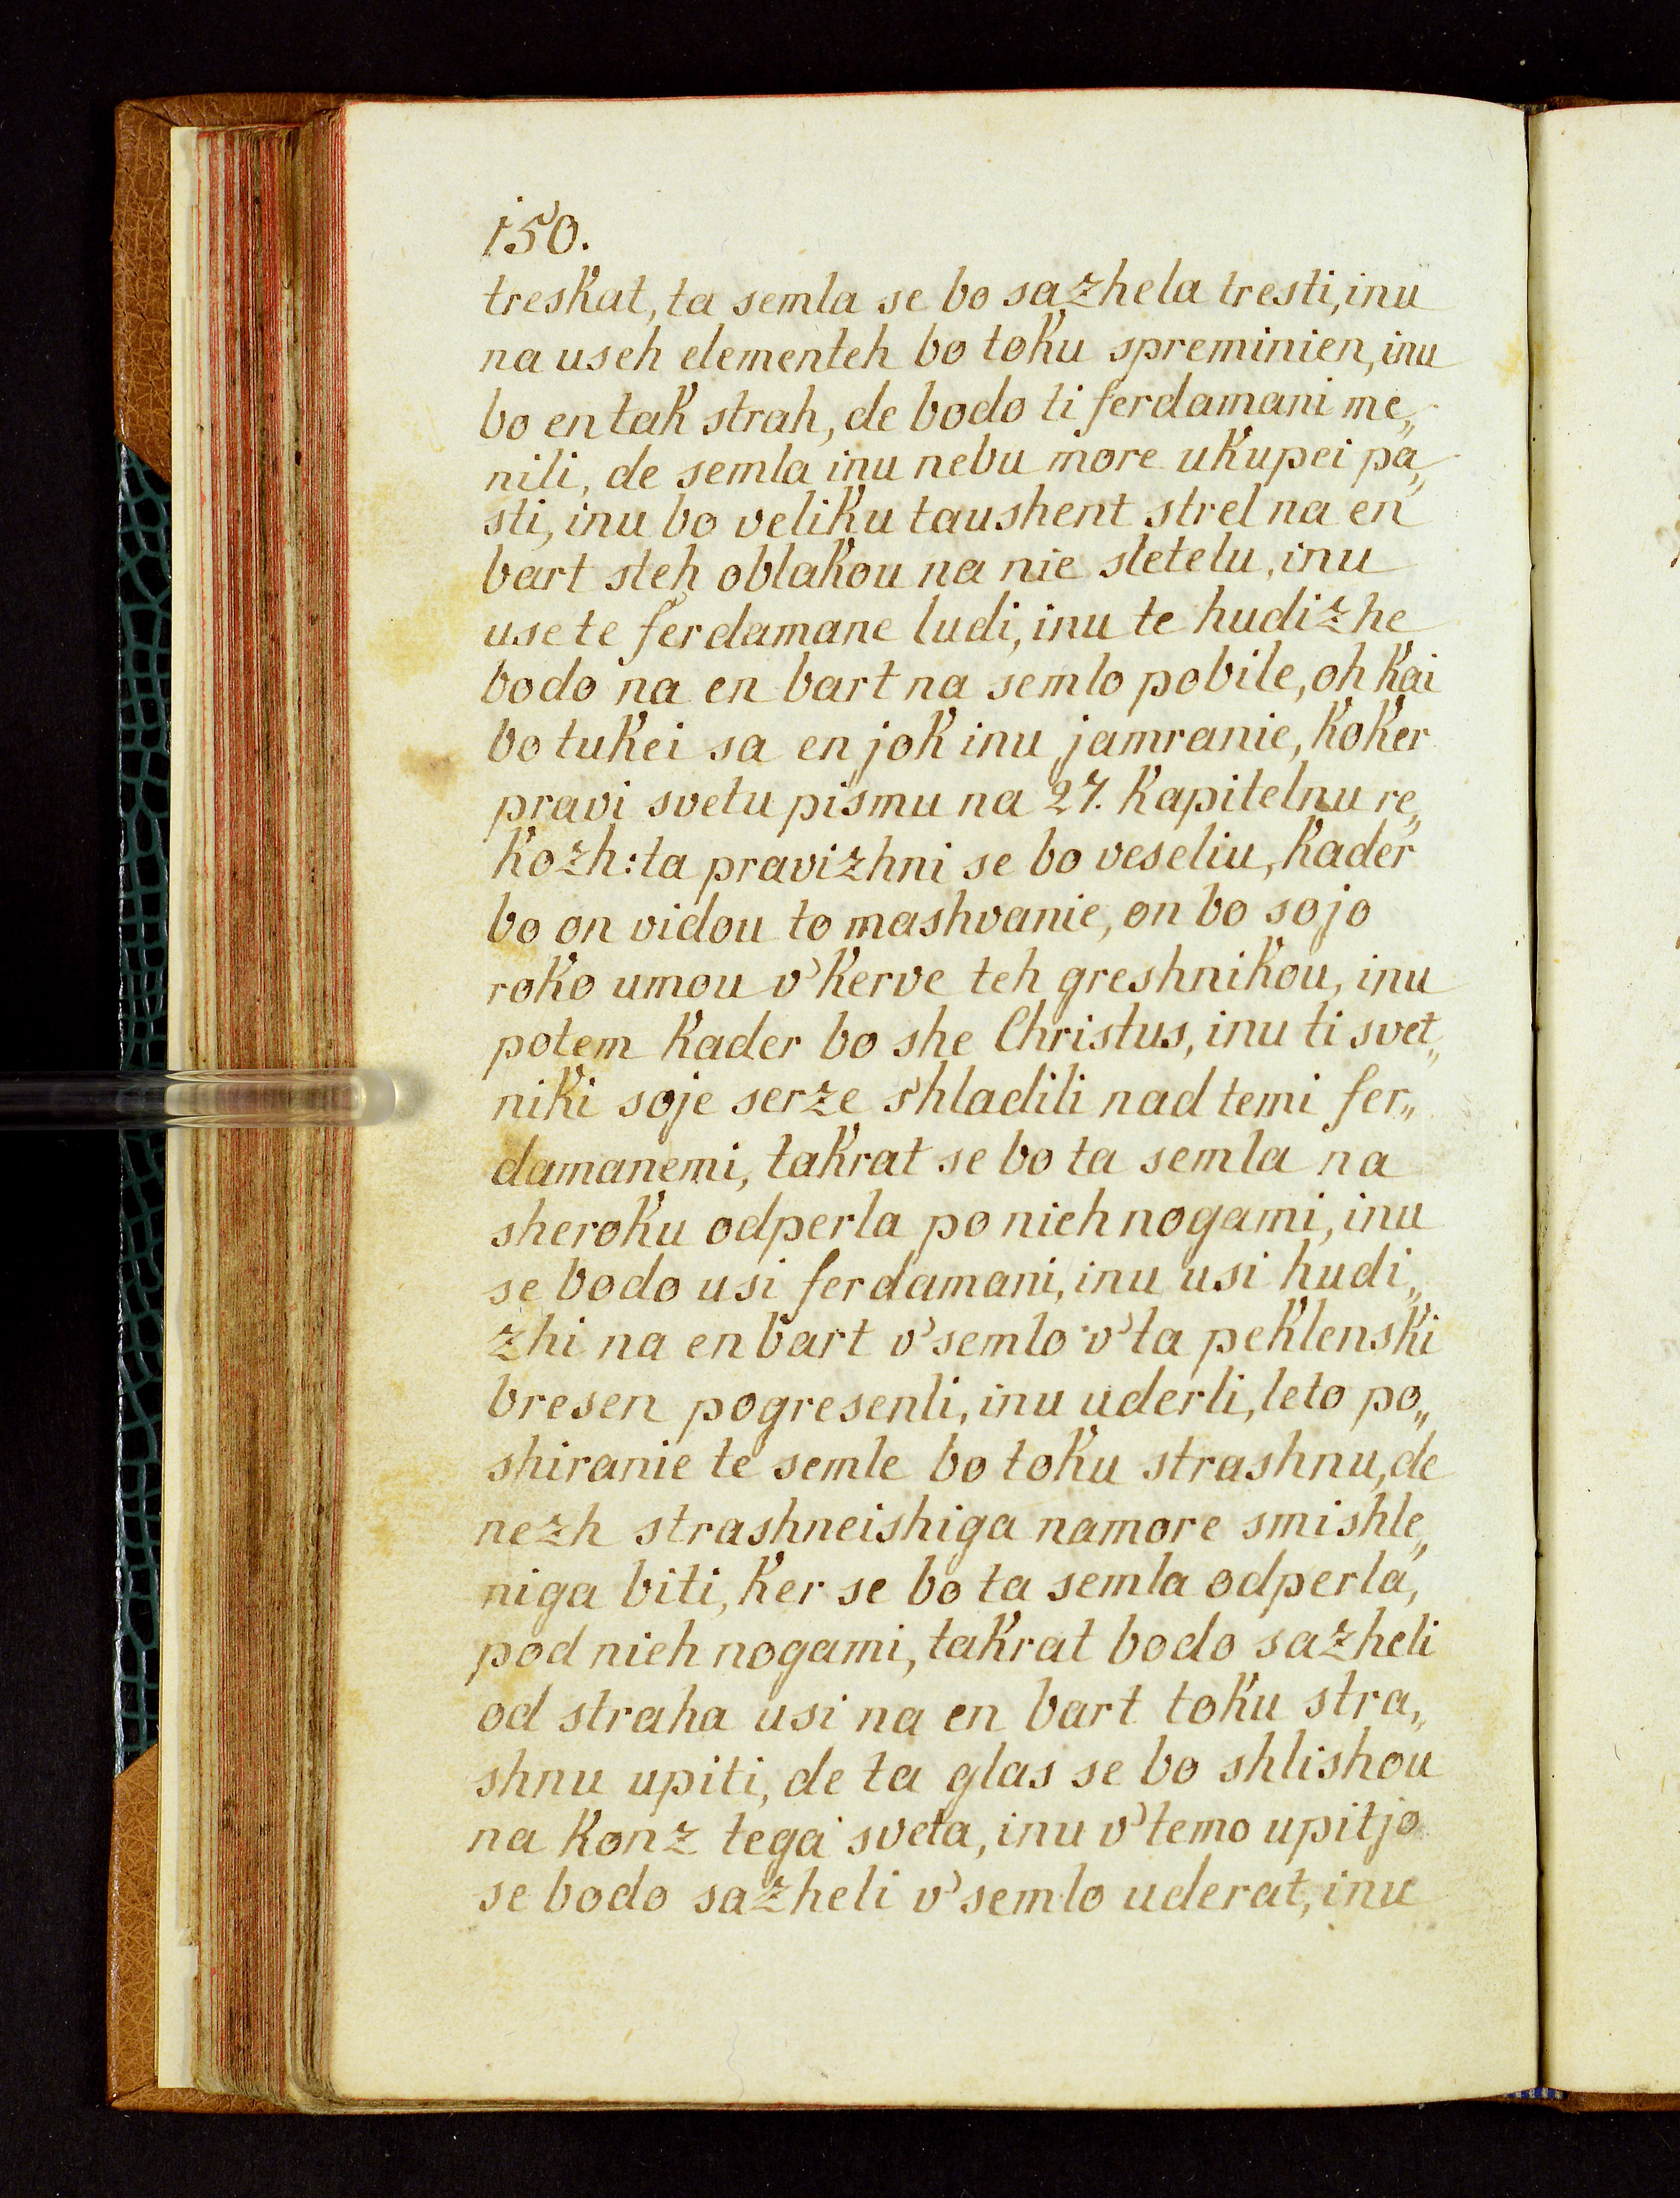 150.
treskat, ta semla se bo sazhela tresti, inu
na useh elementeh bo toku spreminien, inu
bo en tak strah, de bodo ti ferdamani me„
nili, de semla inu nebu more ukupei pa„
sti, inu bo veliku taushent strel na en
bart steh oblakou na nie sletelu, inu
use te ferdamane ludi, inu te hudizhe
bodo na en bart na semlo pobile, oh kai
bo tukei sa en jok inu jamranie, koker
pravi svetu pismu na 27. kapitelnu re„
kozh: ta pravizhni se bo veseliu, kader
bo on vidou to mashvanie, on bo sojo
roko umou v' kerve teh greshnikou, inu
potem kader bo she Christus, inu ti svet„
niki soje serze s'hladili nad temi fer„
damanemi, takrat se bo ta semla na
sheroku odperla po nieh nogami, inu
se bodo usi ferdamani, inu usi hudi„
zhi na en bart v' semlo v' ta peklenski
bresen pogresenli, inu uderli, leto po„
shiranie te semle bo toku strashnu, de
nezh strashneishiga namore smishle„
niga biti, ker se bo ta semla odperla,
pod nieh nogami, takrat bodo sazheli
od straha usi na en bart toku stra„
shnu upiti, de ta glas se bo shlishou
na konz tega sveta, inu v' temo upitjo
se bodo sazheli v' semlo uderat, inu